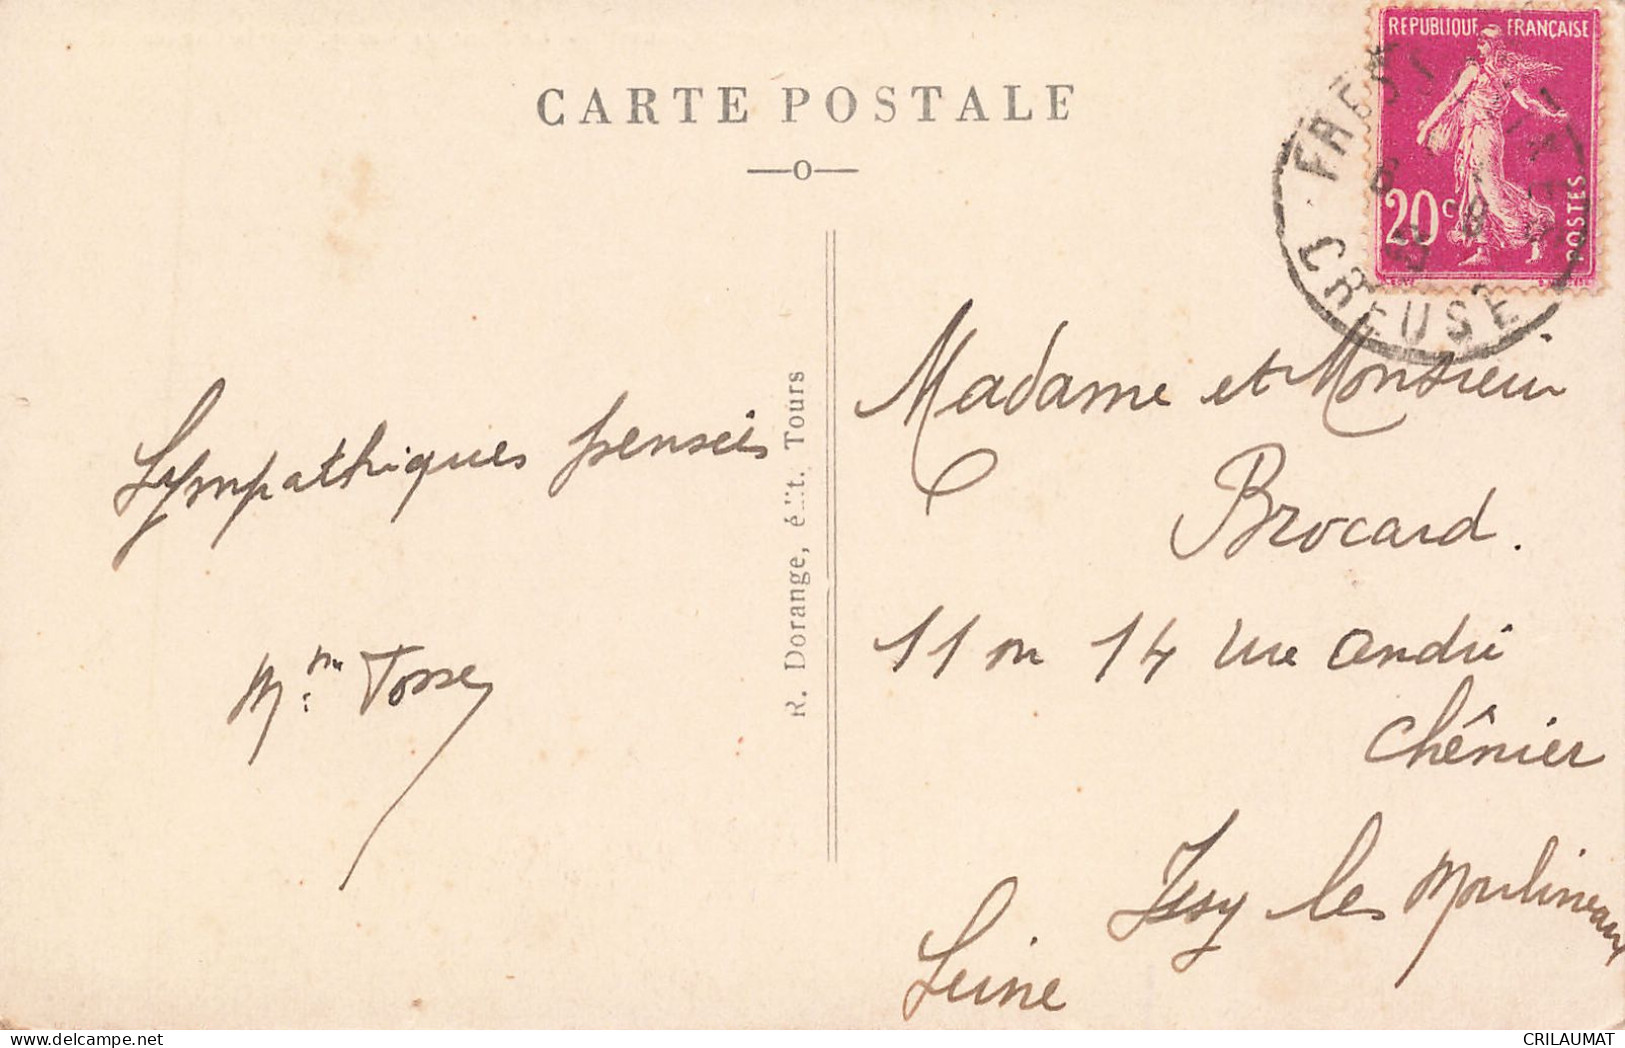 CARTE POSTALE
REPUBLIQUE FRANÇAISE
20c
POSTES
CREUSE
Sympathiques pensées
Mme Tosse
R. Dorange, édit. Tours
Madame et Monsieur
Brocard.
11 ou 14 rue André
Chênier
Issy les Moulineaux
Seine
CRILAUMAT